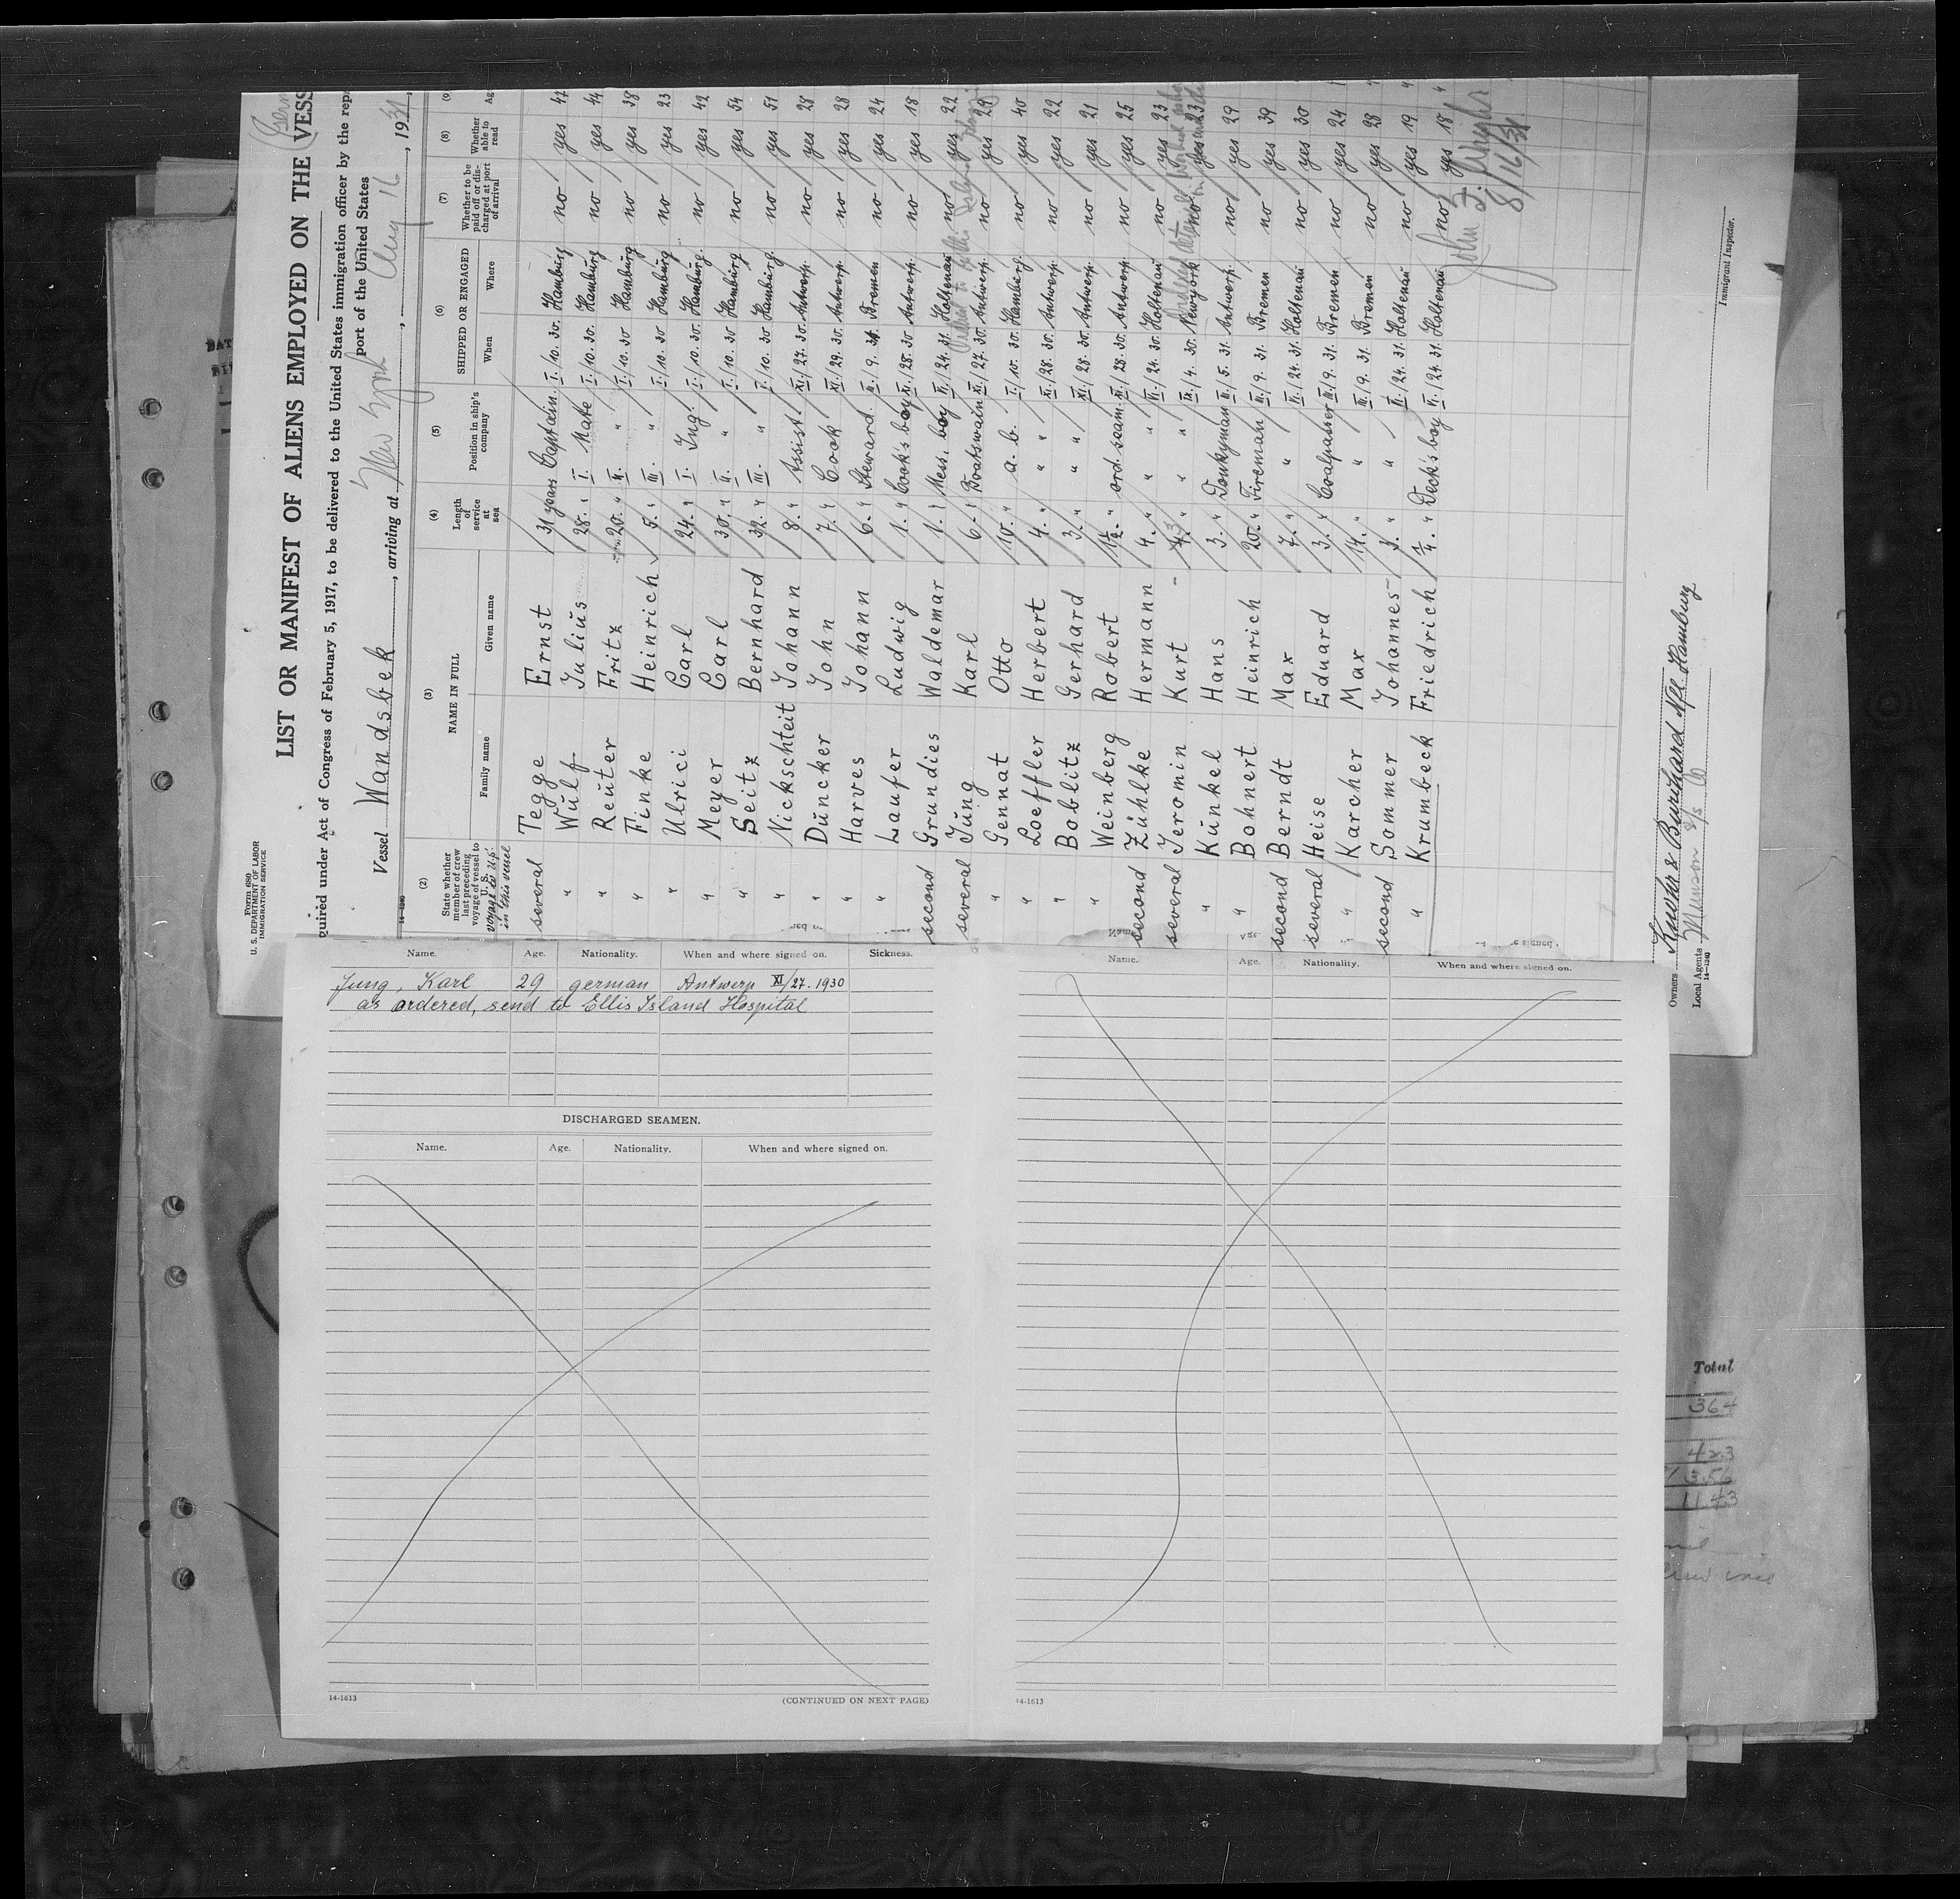 Form 680
U. S. DEPARTMENT OF LABOR
IMMIGRATION SERVICE
LIST OR MANIFEST OF ALIENS EMPLOYED ON THE VESS
quired under Act of Congress of February 5, 1917, to be delivered to the United States immigration officer by the repr
port of the United States
Vessel Wandsbek, arriving at New York, Aug 16, 1931,
14-1240
(2) (3) (4) (5) (6) (7) (8) (9
State whether member of crew last preceding voyage of vessel to U. S. NAME IN FULL Length of service at sea Position in ship's company SHIPPED OR ENGAGED Whether to be paid off or discharged at port of arrival Whether able to read Ag
voyage to U.S. in this vessel Family name Given name When Where
several Tegge Ernst 31 years Captain I./10. 30. Hamburg no yes 47
" Wulf Julius 28. " I. Mate I./10. 30. Hamburg no yes 44
" Reuter Fritz 20. " II. " I./10. 30 Hamburg no yes 38
" Finke Heinrich 5. " III. " I./10. 30 Hamburg no yes 23
" Ulrici Carl 24. " I. Ing. I./10. 30. Hamburg. no yes 42
" Meyer Carl 30. " II. " I./10. 30 Hamburg no yes 54
" Seitz Bernhard 32. " III. " I./10. 30 Hamburg. no yes 51
" Nickschteit Johann 8. " Assist XI./27. 30. Antwerp. no yes 28
" Duncker John 7. " Cook XI./29. 30. Antwerp. no yes 28
" Harves Johann 6. " Steward II./9. 31. Bremen no yes 24
" Laufer Ludwig 1. " Cook's boy XI./28. 30 Antwerp. no yes 18
second Grundies Waldemar 1. " Mess. boy VI./24. 31. Holtenau no yes 22
several Jung Karl 6. " Boatswain XI./27. 30. Antwerp. no yes 29
" Gennat Otto 10. " a. b. I./10. 30. Hamburg. no yes 40
" Loeffler Herbert 4. " " XI./28. 30. Antwerp. no yes 22
" Boblitz Gerhard 3. " " XI./28. 30. Antwerp. no yes 21
" Weinberg Robert 1½. " ord. seam. XI./28. 30. Antwerp. no yes 25
second Zühlke Hermann 4. " " VI./24. 30. Holtenau no yes 23
several Jeromin Kurt " " IX./4. 30. Newyork no yes 23
" Künkel Hans 3. " Donkyman II./5. 31. Antwerp. no yes 29
" Bohnert Heinrich 20. " Fireman III./9. 31. Bremen no yes 39
second Berndt Max 7. " " VI./24. 31. Holtenau no yes 30
several Heise Eduard 3. " Coalpasser III./9. 31. Bremen no yes 24
" Karcher Max 14. " " III./9. 31. Bremen no yes 28
second Sommer Johannes 3. " " VI./24. 31. Holtenau no yes 19
" Krumbeck Friedrich " Deck's boy VI./24. 31. Holtenau no yes 18
8/16/31
Immigrant Inspector.
Owners Knöhr & Burchard Nfl. Hamburg
Local Agents Munson S/S Co
14-1240
Name. Age. Nationality. When and where signed on. Sickness.
Jung, Karl 29 german Antwerp XI/27. 1930
as ordered, send to Ellis Island Hospital
DISCHARGED SEAMEN.
Name. Age. Nationality. When and where signed on.
14-1613 (CONTINUED ON NEXT PAGE)
Name. Age. Nationality. When and where signed on.
14-1613
Total
364
423
356
1143